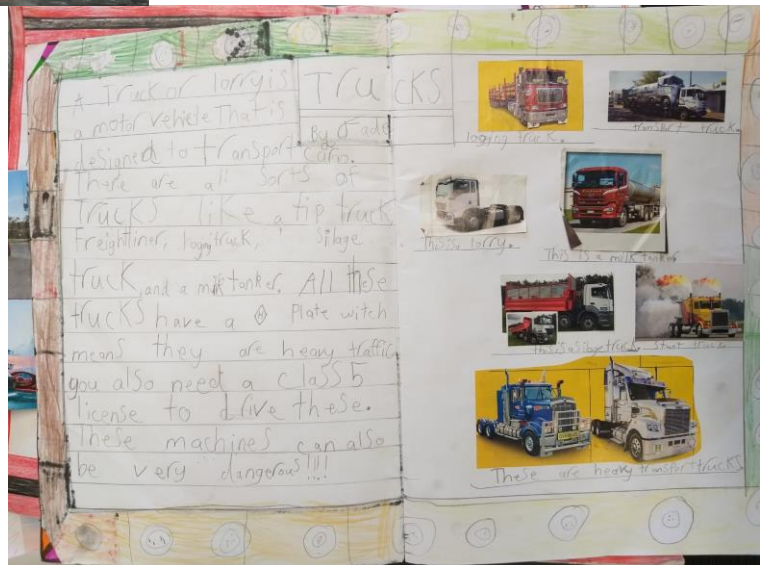 TRUCKS
By Jade
A Truck or lorry is
a motor vehicle That is
designed to transport cargo.
There are all sorts of
Trucks like a tip truck
Freightliner, logging truck, silage
truck, and a milk tanker. All these
trucks have a H Plate witch
means they are heavy traffic
you also need a class 5
license to drive these.
These machines can also
be very dangerous!!!!
logging truck.
transport truck.
This is lorry.
This is a milk tanker
this is a silage truck.
stunt truck.
These are heavy transport trucks